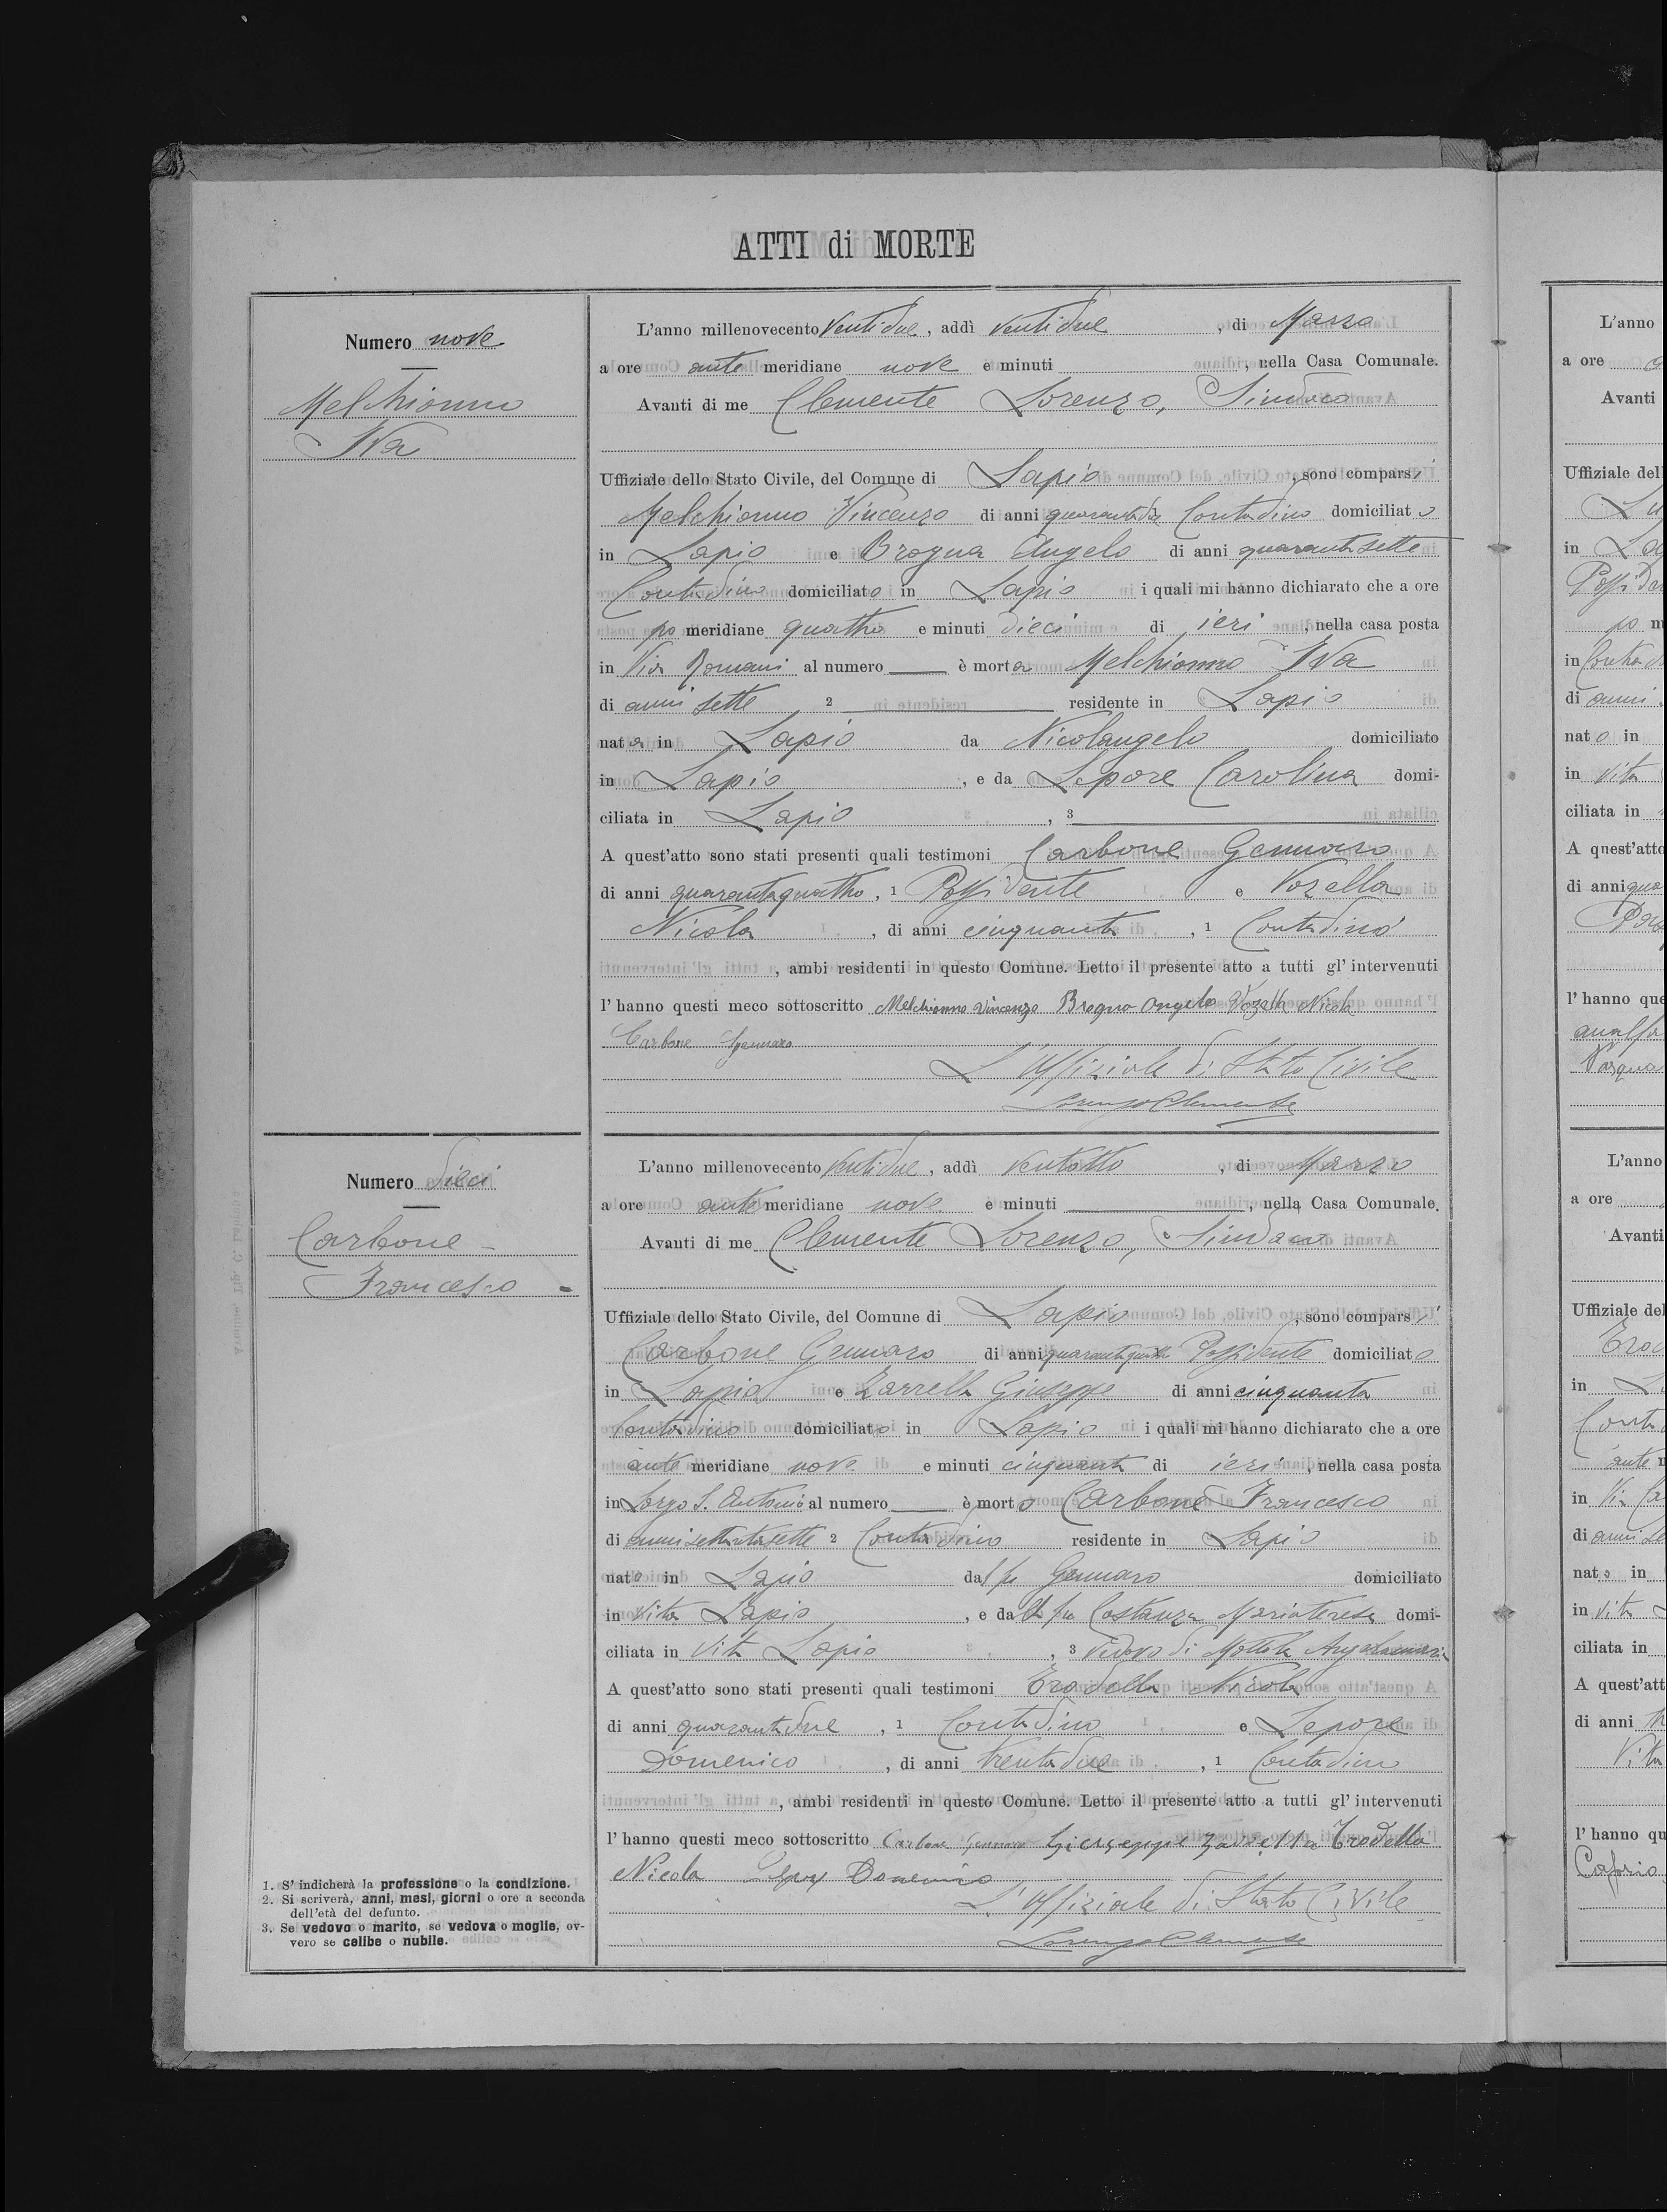 ATTI di MORTE
Numero nove
Melchionno
Iva
L'anno millenovecento ventidue, addì ventidue, di Marzo
a ore ante meridiane nove e minuti , nella Casa Comunale.
Avanti di me Clemente Lorenzo, Sindaco
Uffiziale dello Stato Civile, del Comune di Lapio, sono comparsi
Melchionno Vincenzo di anni Contadino domiciliato
in Lapio e Brogna Angelo di anni quarantasette
Contadino domiciliato in Lapio i quali mi hanno dichiarato che a ore
po meridiane quattro e minuti dieci di ieri, nella casa posta
in Via Romani al numero — è morta Melchionno Iva
di anni sette 2 — residente in Lapio
nata in Lapio da Nicolangelo domiciliato
in Lapio, e da Lepore Carolina domi-
ciliata in Lapio, 3 —
A quest'atto sono stati presenti quali testimoni Carbone Gennaro
di anni quarantaquattro, 1 Possidente e Vozella
Nicola, di anni cinquanta, 1 Contadino
, ambi residenti in questo Comune. Letto il presente atto a tutti gl'intervenuti
l'hanno questi meco sottoscritto Melchionno Vincenzo Brogna Angelo Vozella Nicola
Carbone Gennaro
L'Uffiziale di Stato Civile
Lorenzo Clemente
Numero dieci
Carbone
Francesco
L'anno millenovecento ventidue, addì ventotto, di Marzo
a ore ante meridiane nove e minuti —, nella Casa Comunale.
Avanti di me Clemente Lorenzo, Sindaco
Uffiziale dello Stato Civile, del Comune di Lapio, sono comparsi
Carbone Gennaro di anni quarantaquattro Possidente domiciliato
in Lapio e Zarrella Giuseppe di anni cinquanta
Contadino domiciliato in Lapio i quali mi hanno dichiarato che a ore
ante meridiane nove e minuti cinquanta di ieri, nella casa posta
in Largo S. Antonio al numero — è morto Carbone Francesco
di anni settantasette 2 Contadino residente in Lapio
nato in Lapio dal fu Gennaro domiciliato
in vita Lapio, e dalla fu Costanza Mariateresa domi-
ciliata in vita Lapio, 3 vedovo di Mottola Angelamaria
A quest'atto sono stati presenti quali testimoni Trodella Nicola
di anni quarantadue, 1 Contadino e Lepore
Domenico, di anni trentadue, 1 Contadino
, ambi residenti in questo Comune. Letto il presente atto a tutti gl'intervenuti
l'hanno questi meco sottoscritto Carbone Gennaro Giuseppe Zarrella Trodella
Nicola Lepore Domenico
L'Uffiziale di Stato Civile
Lorenzo Clemente
1. S'indicherà la professione o la condizione.
2. Si scriverà, anni, mesi, giorni o ore a seconda
dell'età del defunto.
3. Se vedovo o marito, se vedova o moglie, ov-
vero se celibe o nubile.
L'anno
a ore
Avanti
Uffiziale del
in
in
di anni
nato in
in vita
ciliata in
A quest'atto
di anni
l'hanno que
L'anno
a ore
Avanti
Uffiziale del
in
ante
in
di anni
nato in
in vita
ciliata in
A quest'att
di anni
l'hanno qu